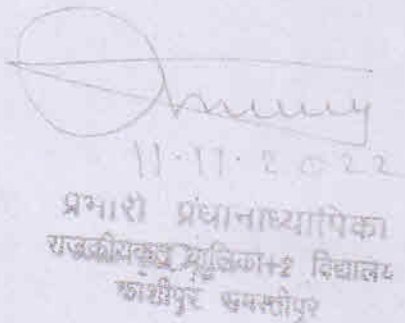 11.11.2022
प्रभारी प्रधानाध्यापिका
राजकीयकृत बालिका+2 विद्यालय
काशीपुर समस्तीपुर